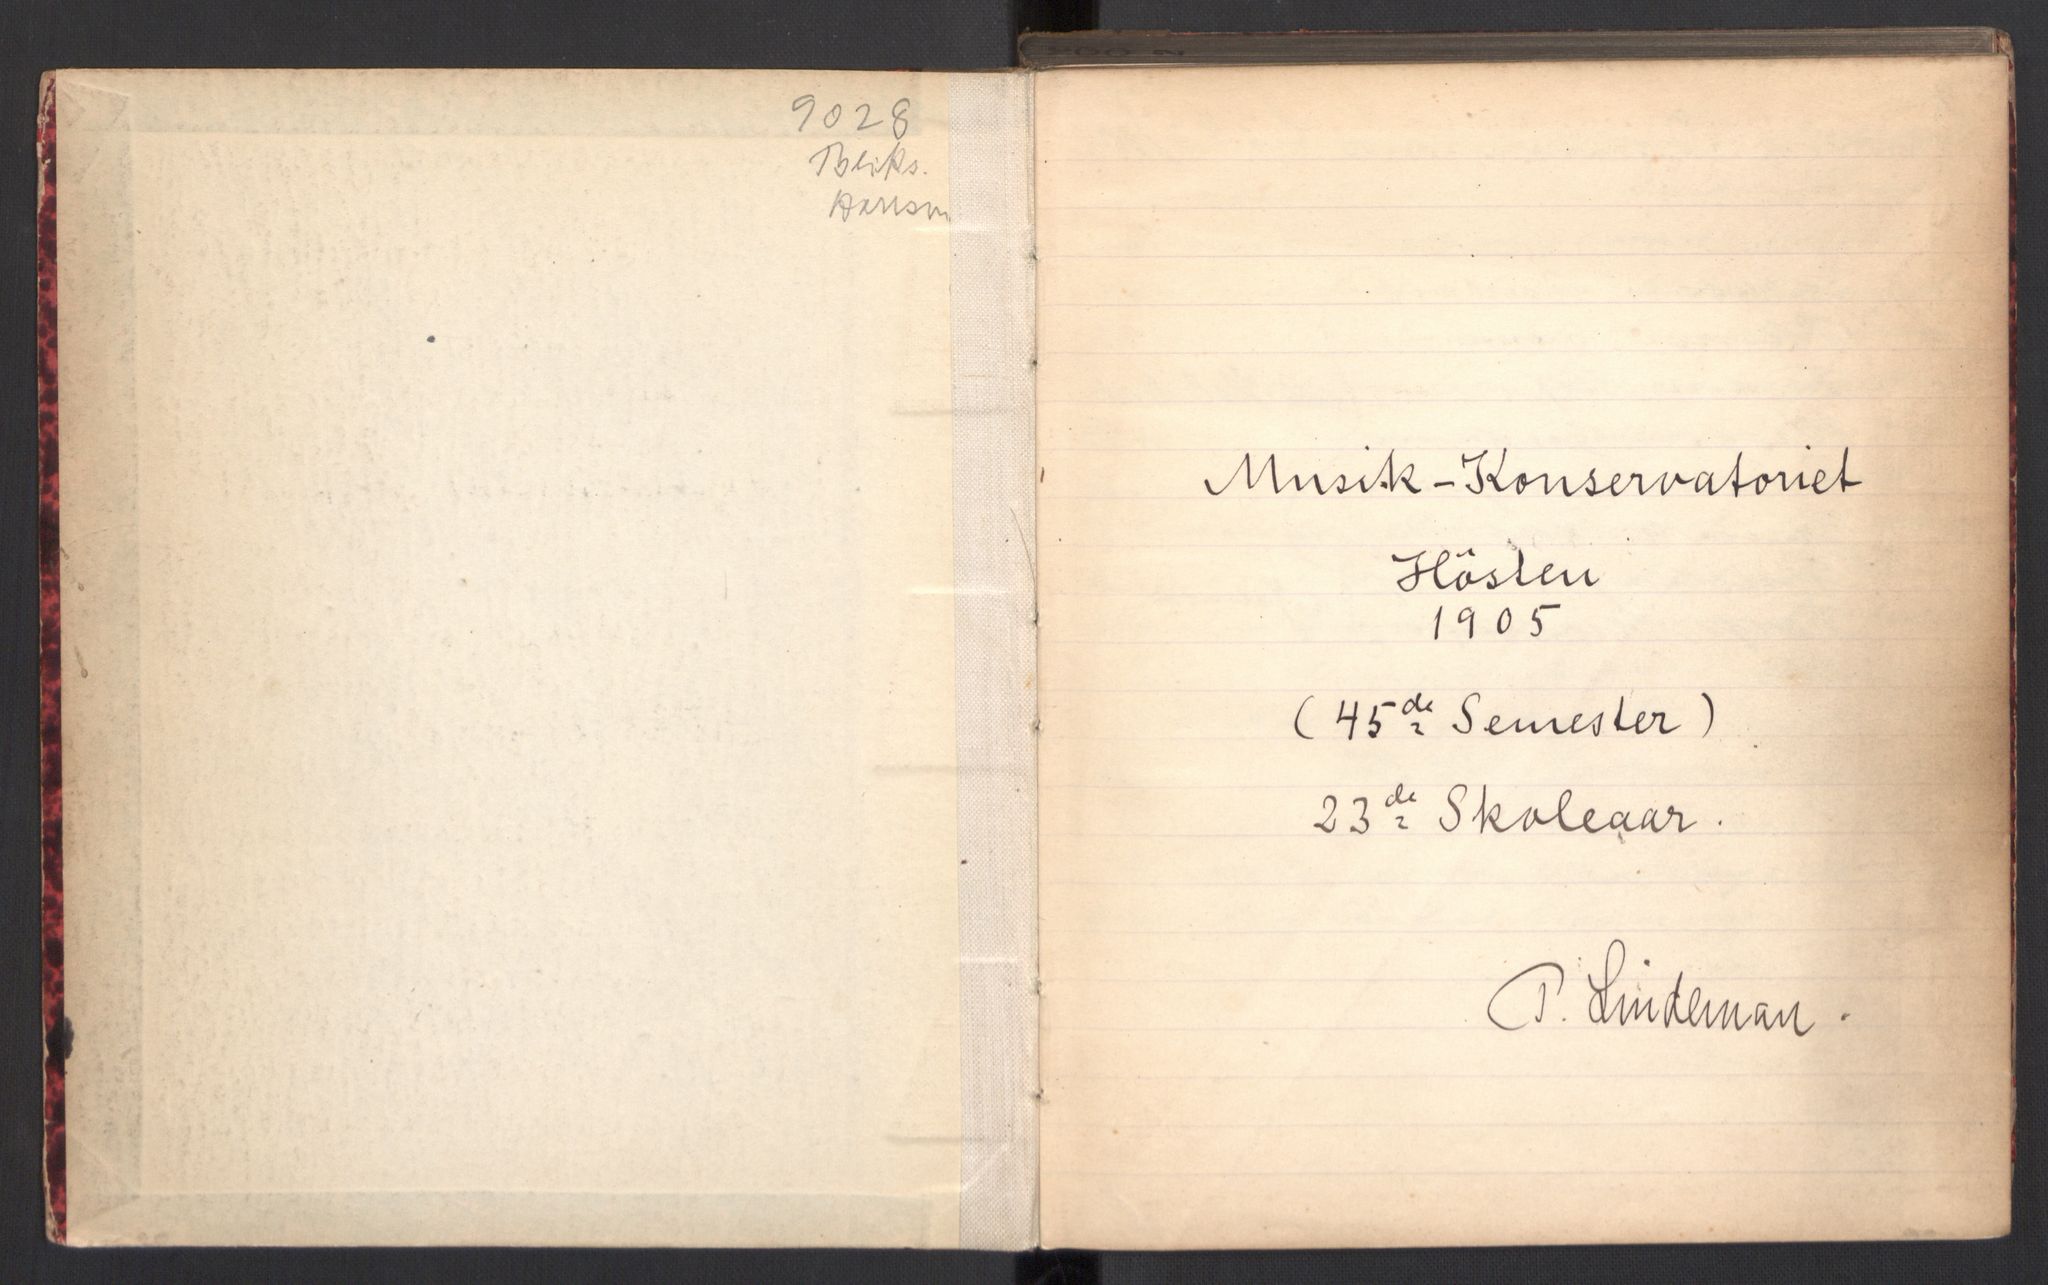 9028
Musik-Konservatoriet
Hösten
1905
(45de Semester)
23de Skoleaar.
P. Lindeman.